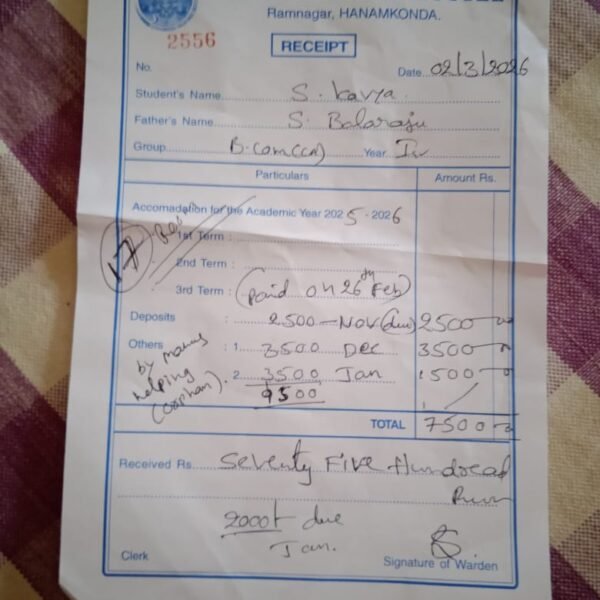 Ramnagar, HANAMKONDA.
2556
RECEIPT
No.
Date 02/3/2026
Student's Name S. Kavya
Father's Name S. Balaraju
Group B.com(CA) Year Iv
Particulars Amount Rs.
Accomadation for the Academic Year 2025-2026
17
1st Term :
2nd Term :
3rd Term : (Paid on 26th Feb)
Deposits : 2500 - Nov (due) 2500
Others : 1. 3500 Dec 3500
2. 3500 Jan 1500
9500
by
helping
(orphan)
TOTAL 7500
Received Rs. Seventy Five Hundread
2000 due
Jan.
Clerk
Signature of Warden